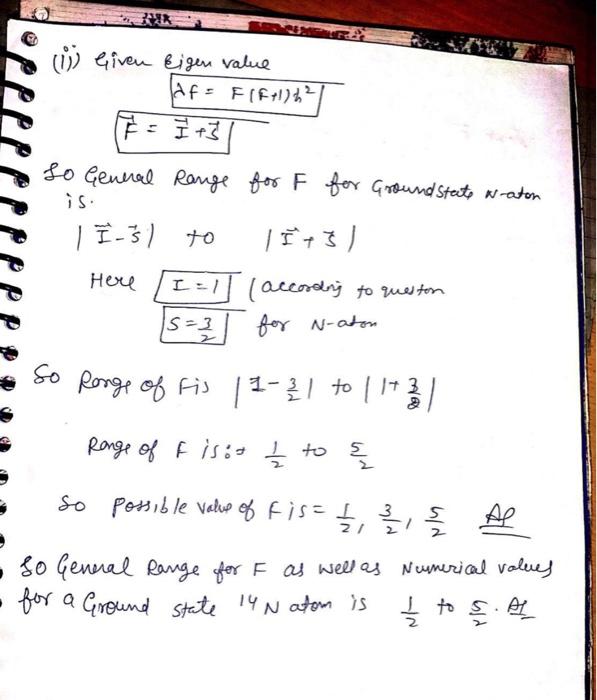 (ii) Given Eigen value
λF = F(F+1)ħ²
F⃗ = I⃗ + S⃗
So General Range for F for Ground State N-atom
is.
| I⃗ - S⃗ | to | I⃗ + S⃗ |
Here I = 1 (according to queston
S = 3/2 for N-atom
So Range of F is | 1 - 3/2 | to | 1 + 3/2 |
Range of F is :→ 1/2 to 5/2
So Possible value of F is = 1/2, 3/2, 5/2
So General Range for F as well as Numerical values
for a Ground state ¹⁴N atom is 1/2 to 5/2.